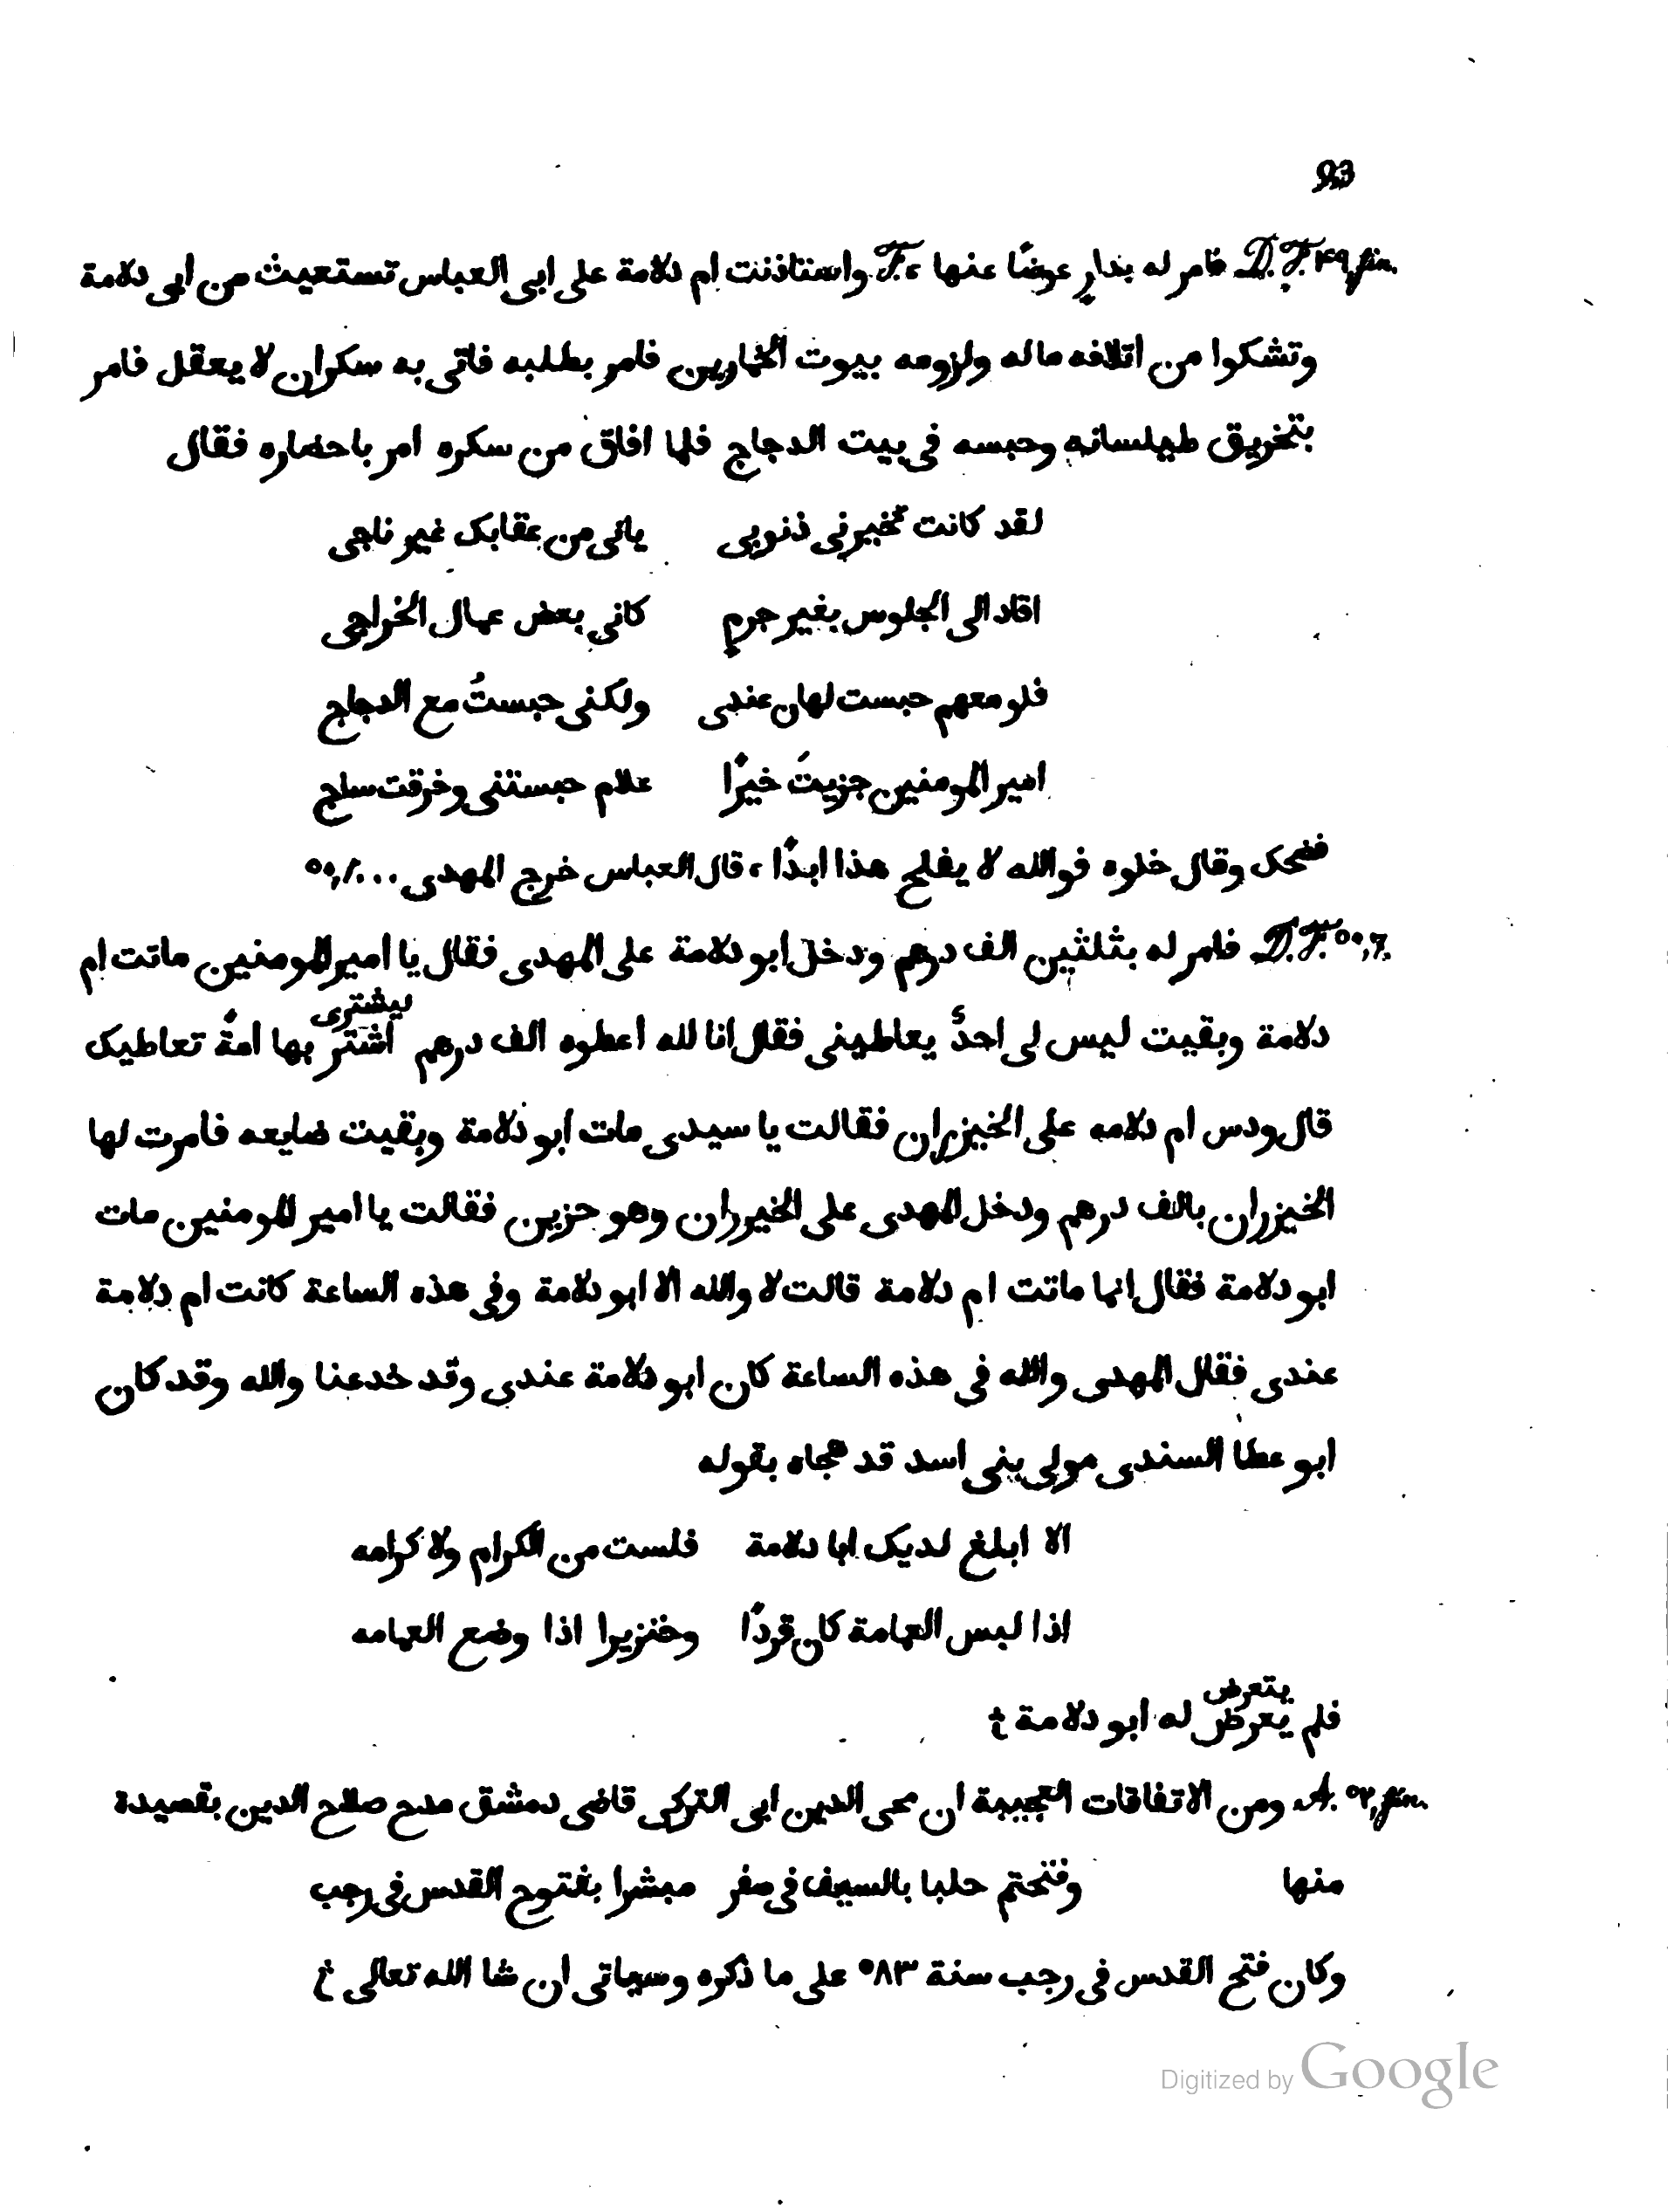 93
D. F. ۴۹, fin. فامر له بدارٍ عوضًا عنها ، F. واستاذنت ام دلامة على ابى العباس تستعيث من ابى دلامة
وتشكوا من اتلافه ماله ولزومه بيوت الخمارين فامر بطلبه فاتى به سكران لا يعقل فامر
بتخريق طيلسانه وحبسه فى بيت الدجاج فلما افاق من سكره امر باحضاره فقال
لقد كانت تخبيرنى ذنوبى يانى من عقابك غير ناجى
اقاد الى الجلوس بغير جرمٍ كانى بعض عمال الخراجى
فلو معهم حبست لهان عندى ولكنى حبستُ مع الدجاج
امير المومنين جزيتَ خيرًا علام حبستنى وخرقت ساج
فضحك وقال خلوه فوالله لا يفلح هذا ابدًا ، قال العباس خرج المهدى ...
D. F. ۵۰, 7. فامر له بثلثين الف درهم ودخل ابو دلامة على المهدى فقال يا امير المومنين ماتت ام
دلامة وبقيت ليس لى احدٌ يعاطينى فقال انا لله اعطوه الف درهم اشتَرَ بها امةً تعاطيك
ليشترى
قال ودس ام دلامه على الخيزران فقالت يا سيدى مات ابو دلامة وبقيت ضايعه فامرت لها
الخيزران بالف درهم ودخل المهدى على الخيرران وهو حزين فقالت يا امير المومنين مات
ابو دلامة فقال انما ماتت ام دلامة قالت لا والله الا ابو دلامة وفى هذه الساعة كانت ام دلامة
عندى فقال المهدى والله فى هذه الساعة كان ابو دلامة عندى وقد خدعنا والله وقد كان
ابو عطا السندى مولى بنى اسد قد هجاه بقوله
الا ابلغ لديك ابا دلامة فلست من الكرام ولا كرامه
اذا لبس العمامة كان قردًا وخنزيرا اذا وضع العمامه
يتعرض
فلم يعرض له ابو دلامة
A. ۵۲, fin. ومن الاتفاقات العجيبة ان محى الدين ابى التركى قاضى دمشق مدح صلاح الدين بقصيدة
منها وفتحتم حلبا بالسيف فى صفر مبشرا بفتوح القدس فى رجب
وكان فتح القدس فى رجب سنة ۵۸۳ على ما ذكره وسياتى ان شا الله تعالى
Digitized by Google